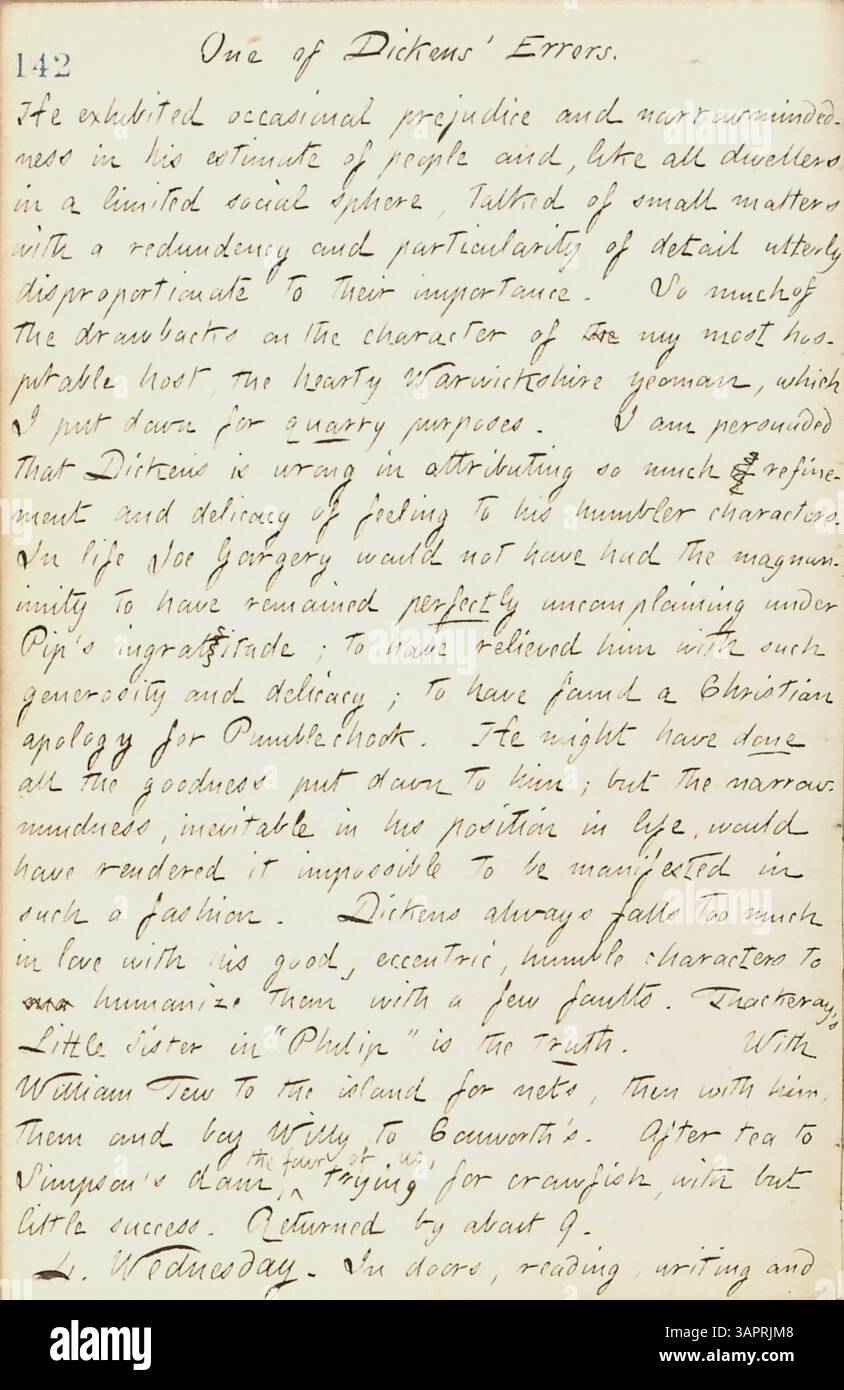 142
One of Dickens' Errors.
He exhibited occasional prejudice and narrowminded-
ness in his estimate of people and, like all dwellers
in a limited social sphere, talked of small matters
with a redundency and particularity of detail utterly
disproportionate to their importance. So much of
the drawbacks on the character of the my most hos-
pitable host, the hearty Warwickshire yeoman, which
I put down for quarry purposes. I am persuaded
that Dickens is wrong in attributing so much refine-
ment and delicacy of feeling to his humbler characters.
In life Joe Gargery would not have had the magnan-
imity to have remained perfectly uncomplaining under
Pip's ingratitude; to have relieved him with such
generosity and delicacy; to have found a Christian
apology for Pumblechook. He might have done
all the goodness put down to him; but the narrow-
mindness, inevitable in his position in life, would
have rendered it impossible to be manifested in
such a fashion. Dickens always falls too much
in love with his good, eccentric, humble characters to
humanize them with a few faults. Thackeray's
Little Sister in "Philip" is the truth. With
William Tew to the island for nets, then with him,
them and boy Willy to Conworth's. After tea to
Simpson's dam, the four of us, trying for crawfish, with but
little success. Returned by about 9.
4. Wednesday. In doors, reading, writing and
alamy
Image ID: 3APRJM8
www.alamy.com